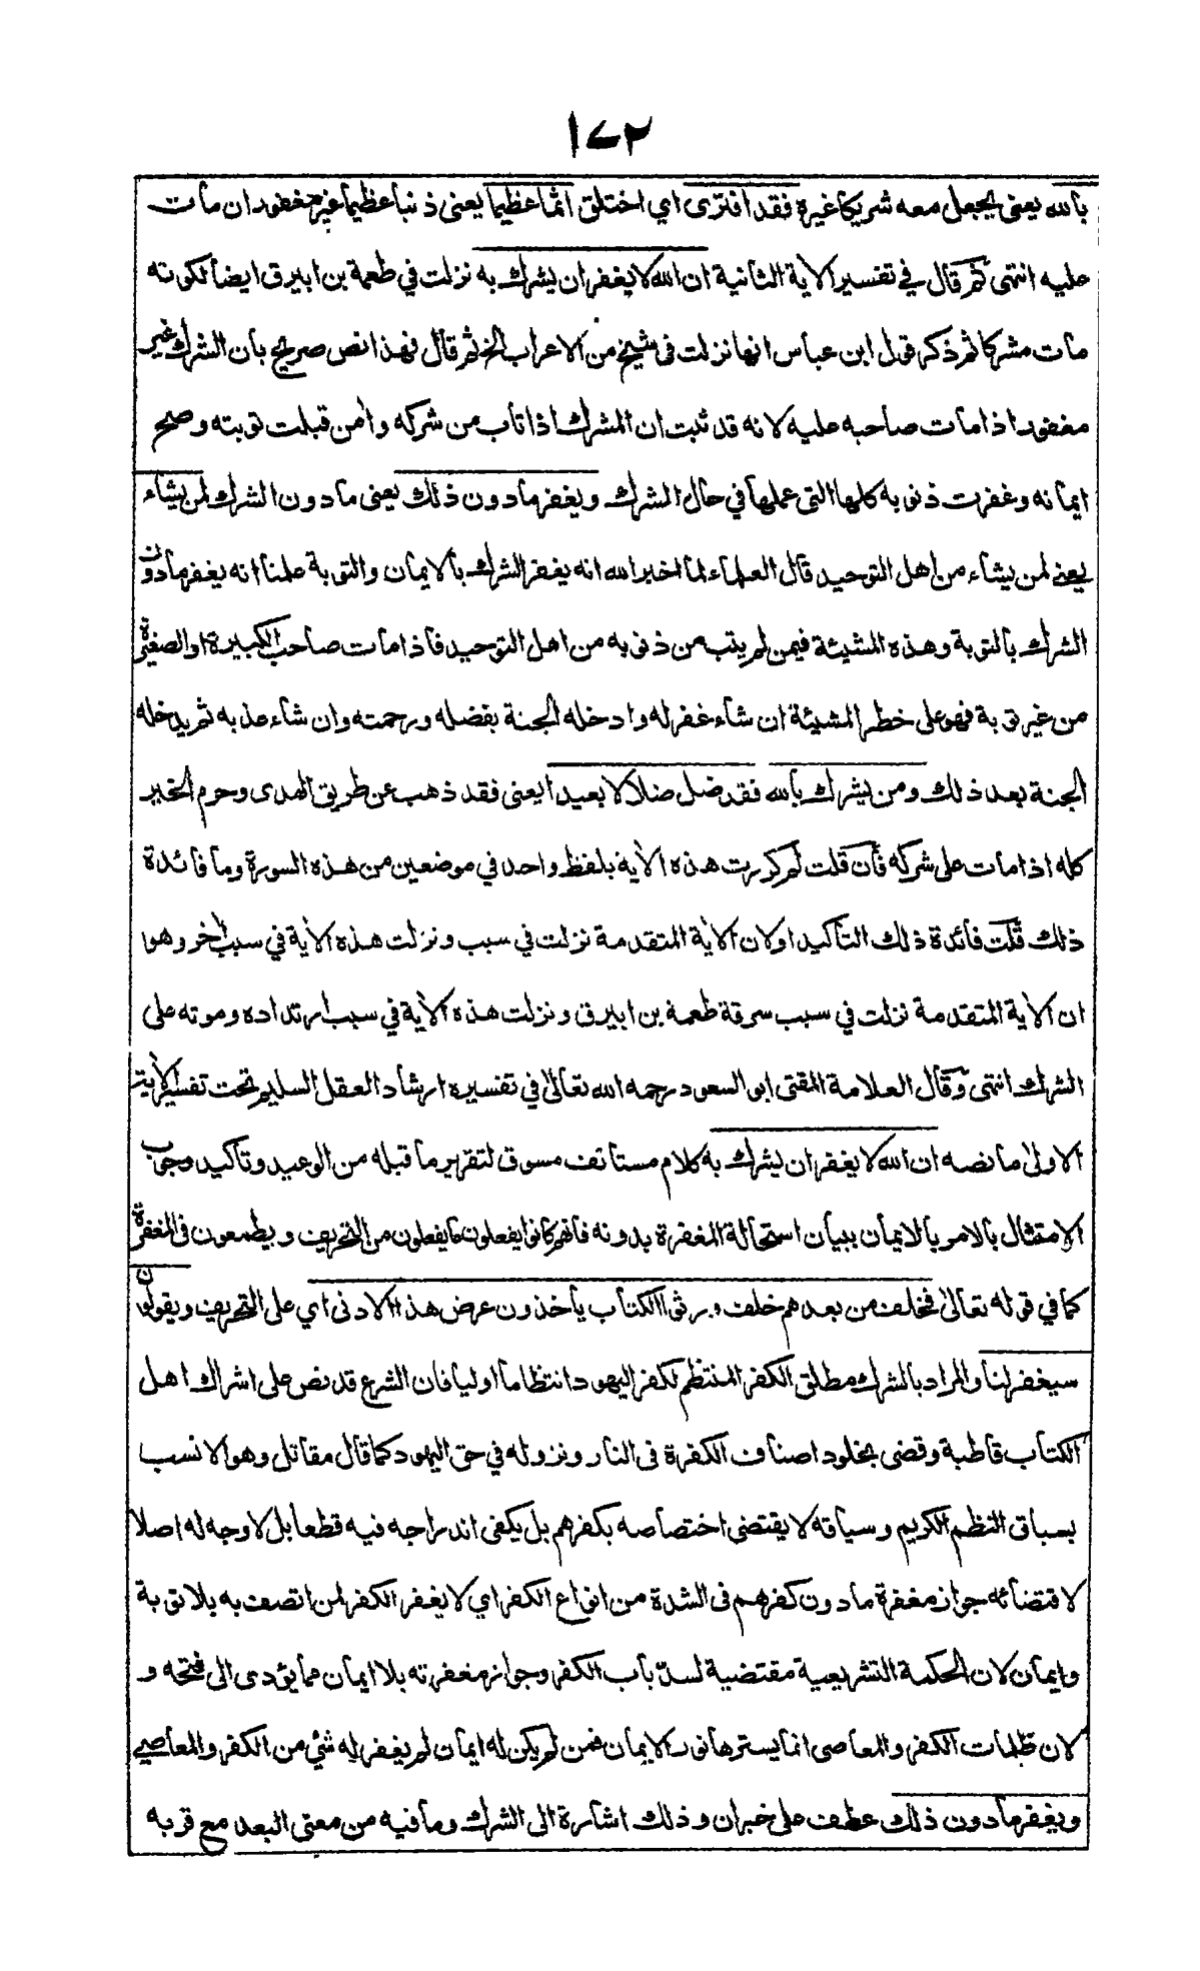 ١٧٢
بالله يعنى يجعل معه شريكا غيره فقد افترى اي اختلق اثما عظيما يعنى ذنبا عظيما غير مغفور ان مات
عليه انتهى ثم قال في تفسير الاية الثانية ان الله لا يغفر ان يشرك به نزلت في طعمة بن ابيرق ايضا لكونه
مات مشركا ثم ذكر قول ابن عباس انها نزلت فى شيخ من الاعراب الخ ثم قال فهذا نص صريح بأن الشرك غير
مغفور اذا مات صاحبه عليه لانه قد ثبت ان المشرك اذا تاب من شركه وأمن قبلت توبته وصح
ايمانه وغفرت ذنوبه كلها التى عملها في حال الشرك ويغفر ما دون ذلك يعنى ما دون الشرك لمن يشاء
يعنى لمن يشاء من اهل التوحيد قال العلماء لما اخبر الله انه يغفر الشرك بالايمان والتوبة علمنا انه يغفر ما دون
الشرك بالتوبة وهذه المشيئة فيمن لم يتب من ذنوبه من اهل التوحيد فاذا مات صاحب الكبيرة او الصغيرة
من غير توبة فهو على خطر المشيئة ان شاء غفر له وادخله الجنة بفضله ورحمته وان شاء عذبه ثم يدخله
الجنة بعد ذلك ومن يشرك بالله فقد ضل ضلالا بعيدا يعنى فقد ذهب عن طريق الهدى وحرم الخير
كله اذا مات على شركه فأن قلت لم كررت هذه الأية بلفظ واحد في موضعين من هذه السورة وما فائدة
ذلك قلت فائدة ذلك التأكيد او لان الأية المتقدمة نزلت في سبب ونزلت هذه الأية في سبب أخر وهو
ان الأية المتقدمة نزلت في سبب سرقة طعمة بن ابيرق ونزلت هذه الأية في سبب ارتداده وموته على
الشرك انتهى وقال العلامة المفتى ابو السعود رحمه الله تعالى في تفسيره ارشاد العقل السليم تحت تفسير الأية
الاولى ما نصه ان الله لا يغفر ان يشرك به كلام مستأنف مسوق لتقرير ما قبله من الوعيد وتأكيد وجوب
الامتثال بالامر بالايمان ببيان استحالة المغفرة بدونه فأنهم كانوا يفعلون ما يفعلون من التحريف ويطمعون فى المغفرة
كما في قوله تعالى فخلف من بعدهم خلف ورثوا الكتاب يأخذون عرض هذا الادنى اي على التحريف ويقولون
سيغفر لنا والمراد بالشرك مطلق الكفر المنتظم لكفر اليهود انتظاما اوليا فان الشرع قد نص على اشراك اهل
الكتاب قاطبة وقضى بخلود اصناف الكفرة فى النار ونزوله في حق اليهود كما قال مقاتل وهو الانسب
بسباق النظم الكريم وسياقه لا يقتضى اختصاصه بكفرهم بل يكفى اندراجه فيه قطعا بل لا وجه له اصلا
لاقتضائه جواز مغفرة ما دون كفرهم فى الشدة من انواع الكفر اي لا يغفر الكفر لمن اتصف به بلا توبة
وايمان لان الحكمة التشريعية مقتضية لسد باب الكفر وجواز مغفرته بلا ايمان مما يؤدى الى فتحه و
لان ظلمات الكفر والمعاصى انما يسترها نور الايمان فمن لم يكن له ايمان لم يغفر له شئ من الكفر والمعاصي
ويغفر ما دون ذلك عطف على خبر ان وذلك اشارة الى الشرك وما فيه من معنى البعد مع قربه